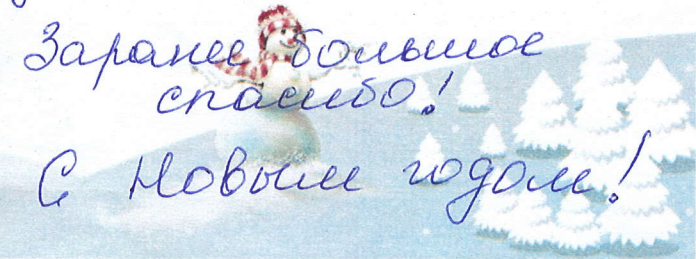 Заранее большое
спасибо!
С Новым годом!